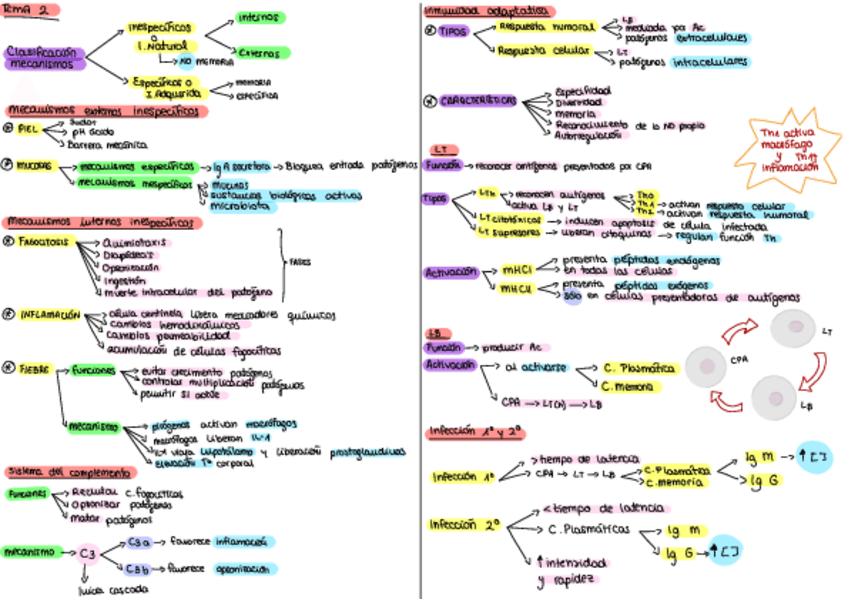 TEMA 2
Clasificación mecanismos
Inespecíficos o I. Natural
NO MEMORIA
internos
externos
Específicos o I Adquirida
MEMORIA
ESPECÍFICA
Mecanismos externos inespecíficos
PIEL
Sudor
pH ácido
Barrera mecánica
MUCOSAS
mecanismos específicos → IgA secretora → Bloquea entrada patógenos
mecanismos inespecíficos
mucinas
sustancias biológicas activas
microbiota
Mecanismos internos inespecíficos
FAGOCITOSIS
Quimiotaxis
Diapédesis
Opsonización
Ingestión
muerte intracelular del patógeno
FASES
INFLAMACIÓN
célula centinela libera mercadores químicos
cambios hemodinámicos
cambios permeabilidad
acumulación de células fagocíticas
FIEBRE
funciones
evitar crecimiento patógenos
controlar multiplicación patógenos
permitir SI actúe
mecanismo
pirógenos activan macrófagos
macrófagos liberan IL-1
IL-1 viaja hipotálamo y liberación prostaglandinas
elevación Tª corporal
Sistema del complemento
funciones
Reclutar c. fagocíticas
Opsonizar patógenos
matar patógenos
mecanismo → C3
C3a → favorece inflamación
C3b → favorece opsonización
inicia cascada
Inmunidad adaptativa
TIPOS
Respuesta humoral
LB
mediada por Ac
patógenos extracelulares
Respuesta celular
LT
patógenos intracelulares
CARACTERÍSTICAS
Especificidad
Diversidad
memoria
Reconocimiento de lo NO propio
Autorregulación
Th1 activa macrófago y Th17 inflamación
LT
Función → reconocer antígenos presentados por CPA
Tipos
LTh
reconocen antígenos
activa LB y LT
Th0
Th1 → activan respuesta celular
Th2 → activan respuesta humoral
LT citotóxicos → inducen apoptosis de célula infectada
LT supresores → liberan citoquinas → regulan función Th
Activación
MHCI
presenta péptidos endógenos
en todas las células
MHCII
presenta péptidos exógenos
sólo en células presentadoras de antígenos
LB
Función → producir Ac
Activación
al activarse
C. Plasmática
C. Memoria
CPA → LT(h) → LB
CPA
LT
LB
Infección 1ª y 2ª
Infección 1ª
> tiempo de latencia
CPA → LT → LB
C. Plasmática
C. memoria
Ig M → ↑ [ ]
Ig G
Infección 2ª
< tiempo de latencia
C. Plasmáticas
Ig M
Ig G → ↑ [ ]
↑ intensidad y rapidez